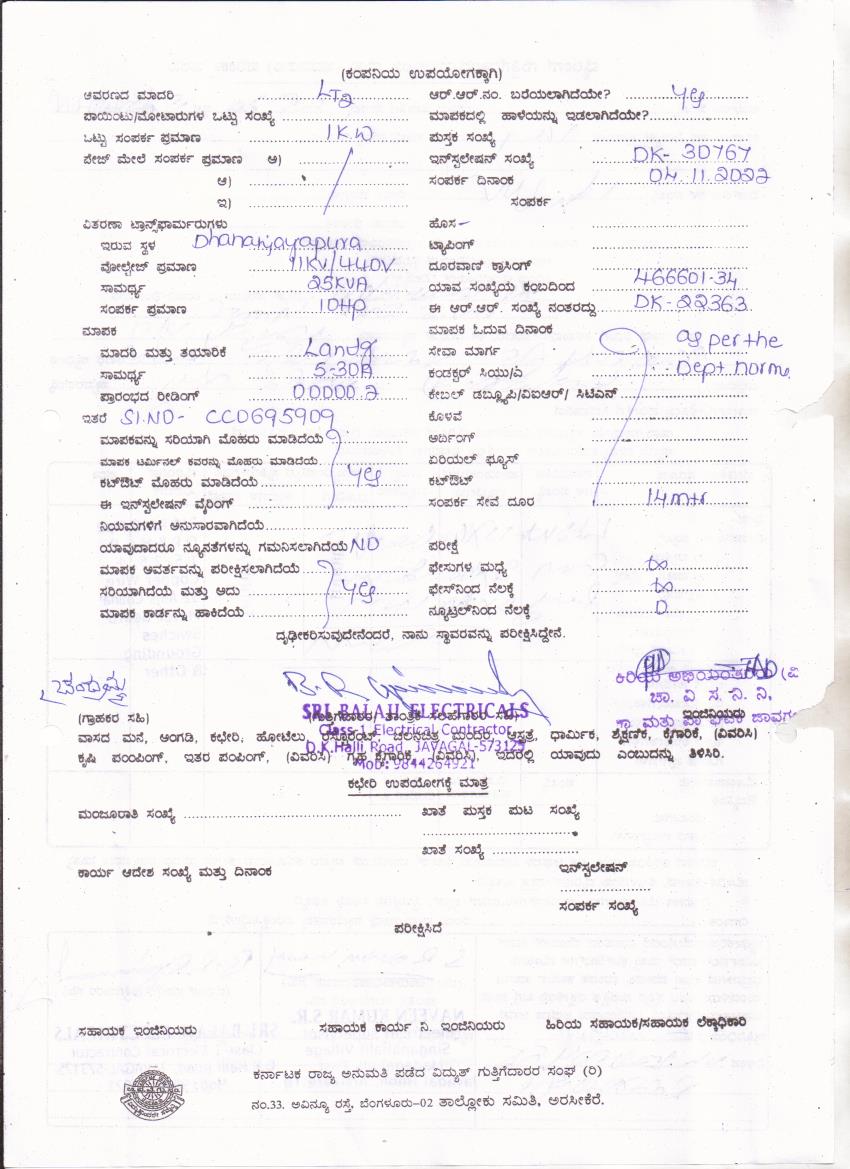 (ಕಂಪನಿಯ ಉಪಯೋಗಕ್ಕಾಗಿ)
ಆವರಣದ ಮಾದರಿ LT2 ಆರ್.ಆರ್.ನಂ. ಬರೆಯಲಾಗಿದೆಯೇ?
ಪಾಯಿಂಟು/ಮೋಟಾರುಗಳ ಒಟ್ಟು ಸಂಖ್ಯೆ ಮಾಪಕದಲ್ಲಿ ಹಾಳೆಯನ್ನು ಇಡಲಾಗಿದೆಯೇ?
ಒಟ್ಟು ಸಂಪರ್ಕ ಪ್ರಮಾಣ 1K.W ಪುಸ್ತಕ ಸಂಖ್ಯೆ
ಪೇಜ್ ಮೇಲೆ ಸಂಪರ್ಕ ಪ್ರಮಾಣ ಅ) ಇನ್‌ಸ್ಟಲೇಷನ್ ಸಂಖ್ಯೆ DK- 30767
ಆ) ಸಂಪರ್ಕ ದಿನಾಂಕ 04.11.2022
ಇ) ಸಂಪರ್ಕ
ವಿತರಣಾ ಟ್ರಾನ್ಸ್‌ಫಾರ್ಮರುಗಳು ಹೊಸ
ಇರುವ ಸ್ಥಳ Dhananjayapura ಟ್ಯಾಪಿಂಗ್
ವೋಲ್ಟೇಜ್ ಪ್ರಮಾಣ 11KV/440V ದೂರವಾಣಿ ಕ್ರಾಸಿಂಗ್
ಸಾಮರ್ಥ್ಯ 25KVA ಯಾವ ಸಂಖ್ಯೆಯ ಕಂಬದಿಂದ 466601-34
ಸಂಪರ್ಕ ಪ್ರಮಾಣ 10HP ಈ ಆರ್.ಆರ್. ಸಂಖ್ಯೆ ನಂತರದ್ದು DK-22363
ಮಾಪಕ ಮಾಪಕ ಓದುವ ದಿನಾಂಕ
ಮಾದರಿ ಮತ್ತು ತಯಾರಿಕೆ Landg ಸೇವಾ ಮಾರ್ಗ as per the
ಸಾಮರ್ಥ್ಯ 5-30A ಕಂಡಕ್ಟರ್ ಸಿಯು/ಎ Dept norms
ಪ್ರಾರಂಭದ ರೀಡಿಂಗ್ 00000.2 ಕೇಬಲ್ ಡಬ್ಲ್ಯೂಪಿ/ವಿಐಆರ್/ ಸಿಟಿಎಸ್
ಇತರೆ Sl.NO- CC0695909 ಕೊಳವೆ
ಮಾಪಕವನ್ನು ಸರಿಯಾಗಿ ಮೊಹರು ಮಾಡಿದೆಯೆ ಅರ್ಥಿಂಗ್
ಮಾಪಕ ಟರ್ಮಿನಲ್ ಕವರನ್ನು ಮೊಹರು ಮಾಡಿದೆಯೆ ಏರಿಯಲ್ ಫ್ಯೂಸ್
ಕಟ್‌ಔಟ್ ಮೊಹರು ಮಾಡಿದೆಯೆ ಕಟ್‌ಔಟ್
ಈ ಇನ್‌ಸ್ಟಲೇಷನ್ ವೈರಿಂಗ್ ಸಂಪರ್ಕ ಸೇವೆ ದೂರ 14mtr
ನಿಯಮಗಳಿಗೆ ಅನುಸಾರವಾಗಿದೆಯೆ
ಯಾವುದಾದರೂ ನ್ಯೂನತೆಗಳನ್ನು ಗಮನಿಸಲಾಗಿದೆಯೆ NO ಪರೀಕ್ಷೆ
ಮಾಪಕ ಆವರ್ತವನ್ನು ಪರೀಕ್ಷಿಸಲಾಗಿದೆಯೆ ಫೇಸುಗಳ ಮಧ್ಯೆ ∞
ಸರಿಯಾಗಿದೆಯೆ ಮತ್ತು ಅದು ಫೇಸ್‌ನಿಂದ ನೆಲಕ್ಕೆ ∞
ಮಾಪಕ ಕಾರ್ಡನ್ನು ಹಾಕಿದೆಯೆ ನ್ಯೂಟ್ರಲ್‌ನಿಂದ ನೆಲಕ್ಕೆ 0
ದೃಢೀಕರಿಸುವುದೇನೆಂದರೆ, ನಾನು ಸ್ಥಾವರವನ್ನು ಪರೀಕ್ಷಿಸಿದ್ದೇನೆ.
ಕಿರಿಯ ಅಭಿಯಂತರರು (ವಿ
SRI BALAJI ELECTRICALS ಚಾ. ವಿ ಸ. ನಿ. ನಿ,
(ಗ್ರಾಹಕರ ಸಹಿ) (ಗುತ್ತಿಗೆದಾರರ/ ತಾಂತ್ರಿಕ ಸಲಹೆಗಾರರ ಸಹಿ) ಇಂಜಿನಿಯರು
Class-1 Electrical Contractor
ವಾಸದ ಮನೆ, ಅಂಗಡಿ, ಕಛೇರಿ, ಹೋಟೆಲು, ರೆಸ್ಟೋರೆಂಟ್, ಚಲನಚಿತ್ರ ಮಂದಿರ, ಆಸ್ಪತ್ರೆ, ಧಾರ್ಮಿಕ, ಶೈಕ್ಷಣಿಕ, ಕೈಗಾರಿಕೆ, (ವಿವರಿಸಿ)
D.K.Halli Road, JAVAGAL-573125
ಕೃಷಿ ಪಂಪಿಂಗ್, ಇತರ ಪಂಪಿಂಗ್, (ವಿವರಿಸಿ) ಗೃಹ ಕೈಗಾರಿಕೆ, (ವಿವರಿಸಿ), ಇದರಲ್ಲಿ ಯಾವುದು ಎಂಬುದನ್ನು ತಿಳಿಸಿರಿ.
Mob: 9844264921
ಕಛೇರಿ ಉಪಯೋಗಕ್ಕೆ ಮಾತ್ರ
ಮಂಜೂರಾತಿ ಸಂಖ್ಯೆ ಖಾತೆ ಪುಸ್ತಕ ಪುಟ ಸಂಖ್ಯೆ
ಖಾತೆ ಸಂಖ್ಯೆ
ಕಾರ್ಯ ಆದೇಶ ಸಂಖ್ಯೆ ಮತ್ತು ದಿನಾಂಕ ಇನ್‌ಸ್ಟಲೇಷನ್
ಸಂಪರ್ಕ ಸಂಖ್ಯೆ
ಪರೀಕ್ಷಿಸಿದೆ
ಸಹಾಯಕ ಇಂಜಿನಿಯರು ಸಹಾಯಕ ಕಾರ್ಯ ನಿ. ಇಂಜಿನಿಯರು ಹಿರಿಯ ಸಹಾಯಕ/ಸಹಾಯಕ ಲೆಕ್ಕಾಧಿಕಾರಿ
ಕರ್ನಾಟಕ ರಾಜ್ಯ ಅನುಮತಿ ಪಡೆದ ವಿದ್ಯುತ್ ಗುತ್ತಿಗೆದಾರರ ಸಂಘ (ರಿ)
ನಂ.33. ಅವಿನ್ಯೂ ರಸ್ತೆ, ಬೆಂಗಳೂರು-02 ತಾಲ್ಲೋಕು ಸಮಿತಿ, ಅರಸೀಕೆರೆ.